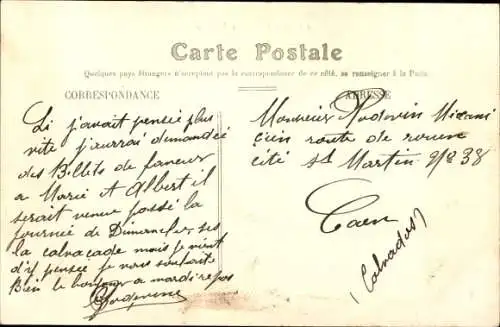 Carte Postale
Quelques pays étrangers n'acceptant pas la correspondance de ce côté, se renseigner à la Poste.
CORRESPONDANCE
ADRESSE
Si j'avait pensée plus
vite j'aurrai demandée
des Billets de faveurs
a Marie et Albert il
serait venue passé la
journée de Dimanche, ses
la calvacade mais je vient
d'if pensée je vous souhaite
Bien le bonjour a mardi repos
Monsieur
route de rouen
cité St Martin 9/8 38
Caen
(Calvados)